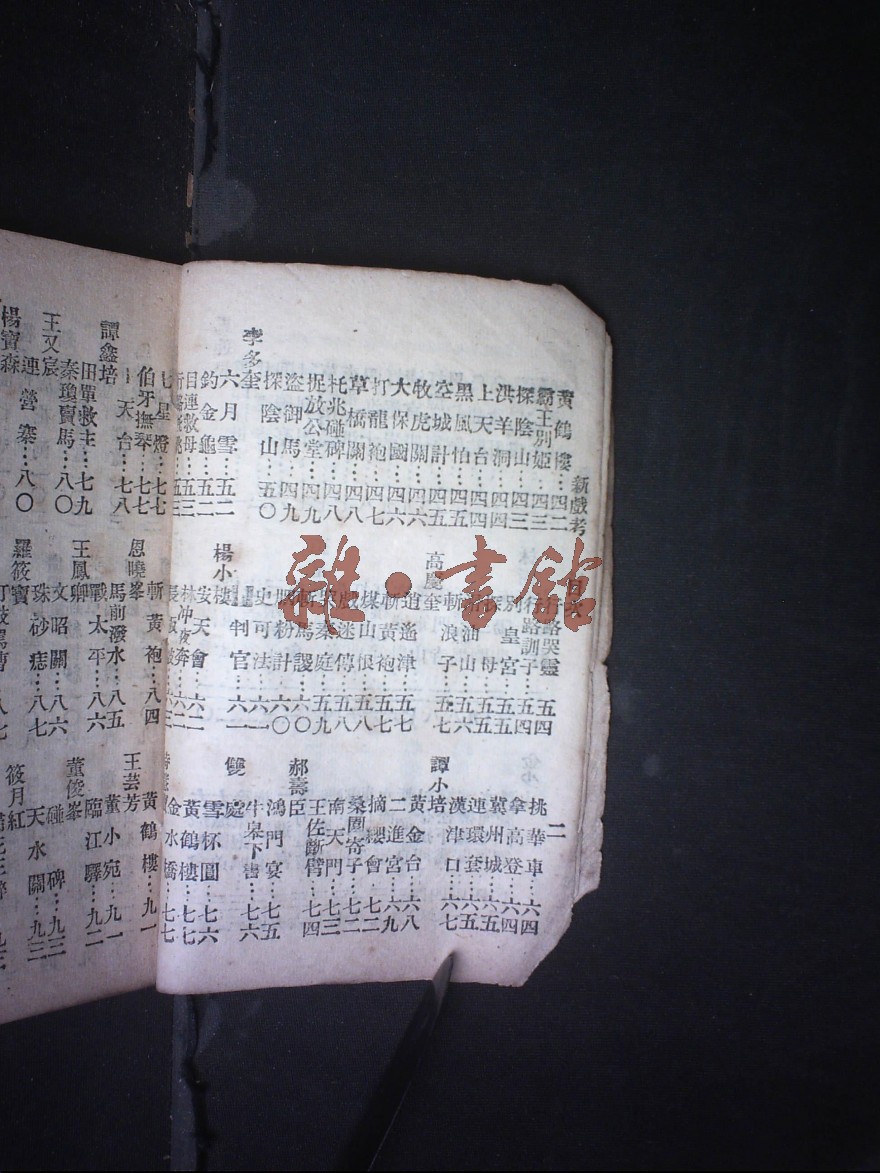 新戲考
二
黃鶴樓⋯四二
霸王別姬⋯四三
探陰山⋯四三
洪羊洞⋯四四
上天台⋯四四
黑風怕⋯四五
空城計⋯四五
牧虎關⋯四六
大保國⋯四六
打龍袍⋯四七
草橋關⋯四八
托兆碰碑⋯四八
捉放公堂⋯四九
盜御馬⋯四九
探陰山⋯五〇
李多奎
六月雪⋯五二
釣金龜⋯五二
目連救母⋯五三
行路哭靈⋯五四
行路訓子⋯五四
別皇宮⋯五四
母⋯五五
山⋯五六
斬浪子⋯五七
高慶奎
逍遙津⋯五七
斬黃袍⋯五七
煤山恨⋯五八
戲迷傳⋯五八
哭秦庭⋯五九
斬馬謖⋯六〇
胭粉計⋯六〇
史可法⋯六一
判官⋯六一
楊小樓
安天會⋯六二
林冲夜奔⋯六二
挑華車⋯六四
拿高登⋯六四
冀州城⋯六五
連環套⋯六五
漢津口⋯六七
譚小培
黃金台⋯六八
二進宮⋯六九
摘纓會⋯七二
桑園寄子⋯七二
南天門⋯七三
王佐斷臂⋯七四
郝壽臣
鴻門宴⋯七五
牛皋下書⋯七六
雙處
雪杯圓⋯七六
黃鶴樓⋯七七
金水橋⋯七七
七星燈⋯七七
伯牙撫琴⋯七七
天台⋯七八
譚鑫培
田單救主⋯七九
秦瓊賣馬⋯八〇
王又宸
連營寨⋯八〇
楊寶森
恩曉峯
斬黃袍⋯八四
馬前潑水⋯八五
戰太平⋯八六
王鳳卿
文昭關⋯八六
珠砂痣⋯八七
羅筱寶
打鼓罵曹⋯八七
黃鶴樓⋯九一
王芸芳
董小宛⋯九一
臨江驛⋯九二
董俊峯
碰碑⋯九二
天水關⋯九三
筱月紅
雜·書館